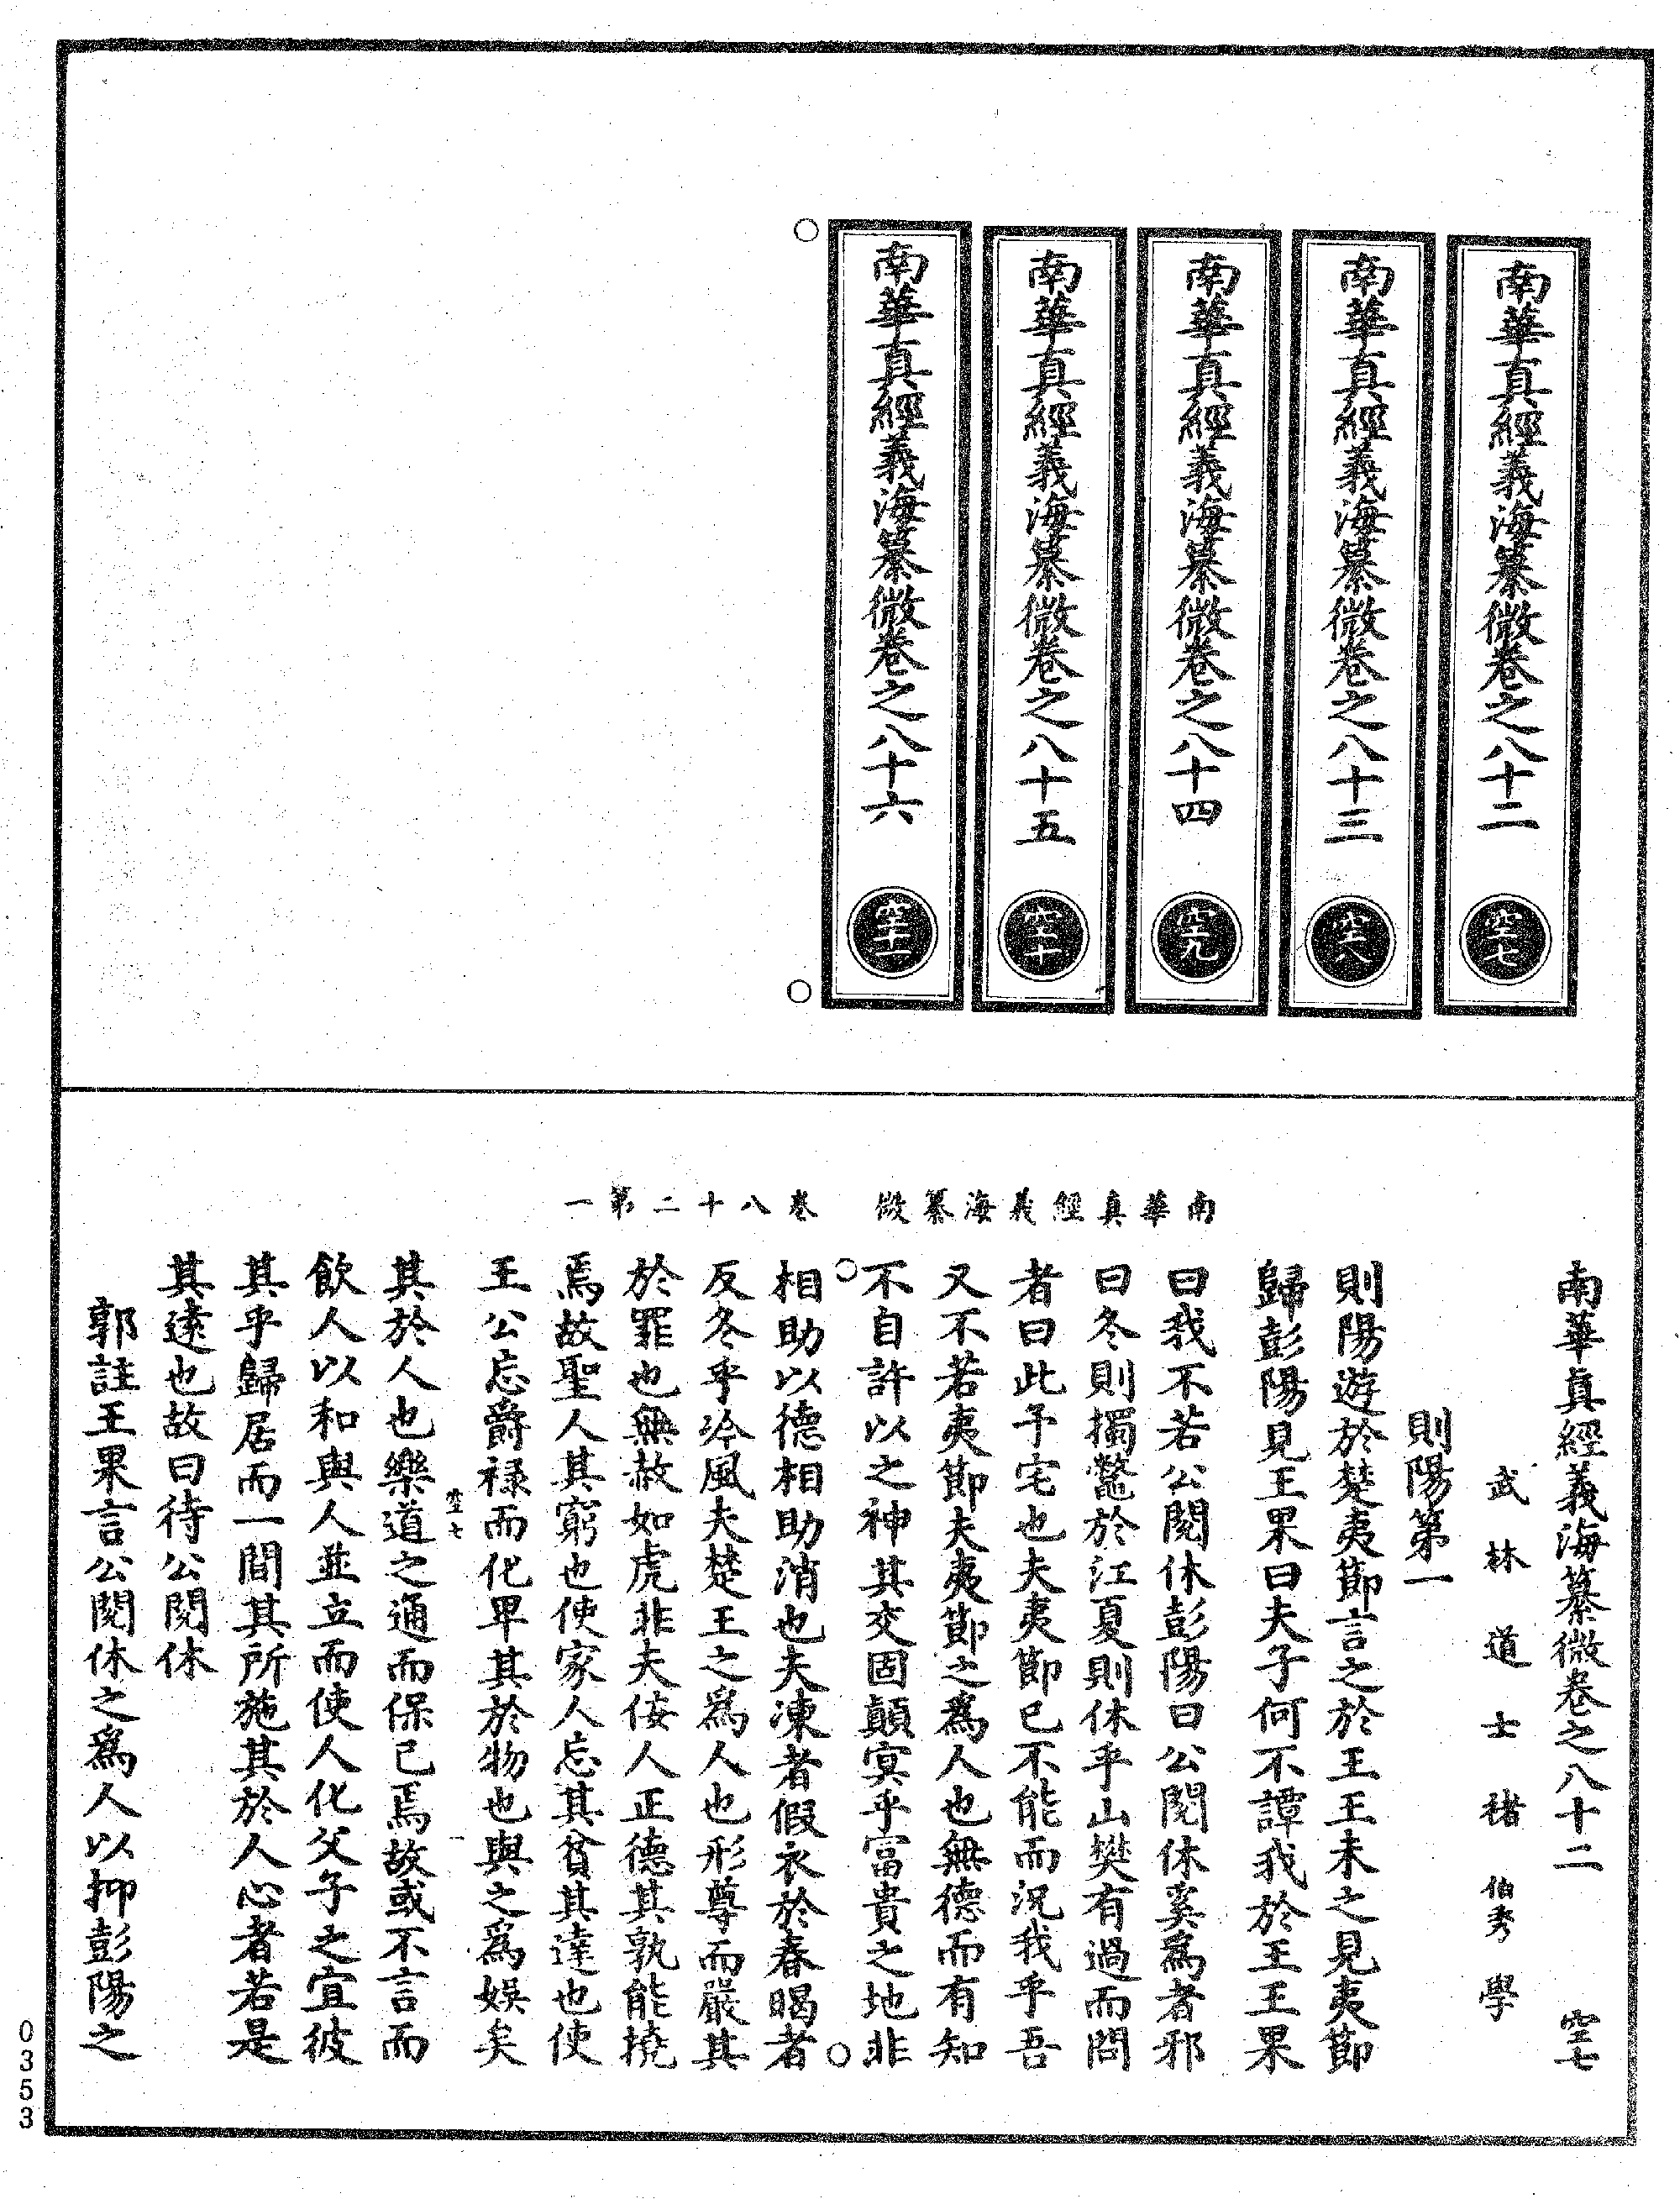 南華真經義海纂微卷之八十二 空七
南華真經義海纂微卷之八十三 空八
南華真經義海纂微卷之八十四 空九
南華真經義海纂微卷之八十五 空十
南華真經義海纂微卷之八十六 空十一
南華真經義海纂微 卷八十二第一
南華真經義海纂微卷之八十二 空七
武林道士褚伯秀學
則陽第一
則陽遊於楚夷節言之於王王未之見夷節
歸彭陽見王果曰夫子何不譚我於王王果
曰我不若公閱休彭陽曰公閱休奚為者邪
曰冬則擉鼈於江夏則休乎山樊有過而問
者曰此予宅也夫夷節已不能而況我乎吾
又不若夷節夫夷節之為人也無德而有知
不自許以之神其交固顛冥乎富貴之地非
相助以德相助消也夫凍者假衣於春暍者
反冬乎冷風夫楚王之為人也形尊而嚴其
於罪也無赦如虎非夫佞人正德其孰能撓
焉故聖人其窮也使家人忘其貧其達也使
王公忘爵祿而化卑其於物也與之為娛矣
空七
其於人也樂道之通而保己焉故或不言而
飲人以和與人並立而使人化父子之宜彼
其乎歸居而一閒其所施其於人心者若是
其遠也故曰待公閱休
郭註王果言公閱休之為人以抑彭陽之
0353